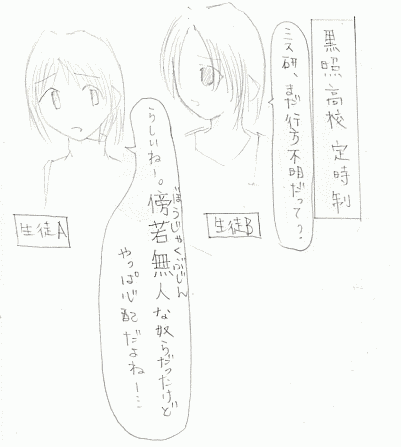 黒照高校 定時制
ミス研、まだ行方不明だって?
生徒B
らしいねー。傍若無人な奴らだったけど
ぼうじゃくぶじん
やっぱ心配だよねー…
生徒A